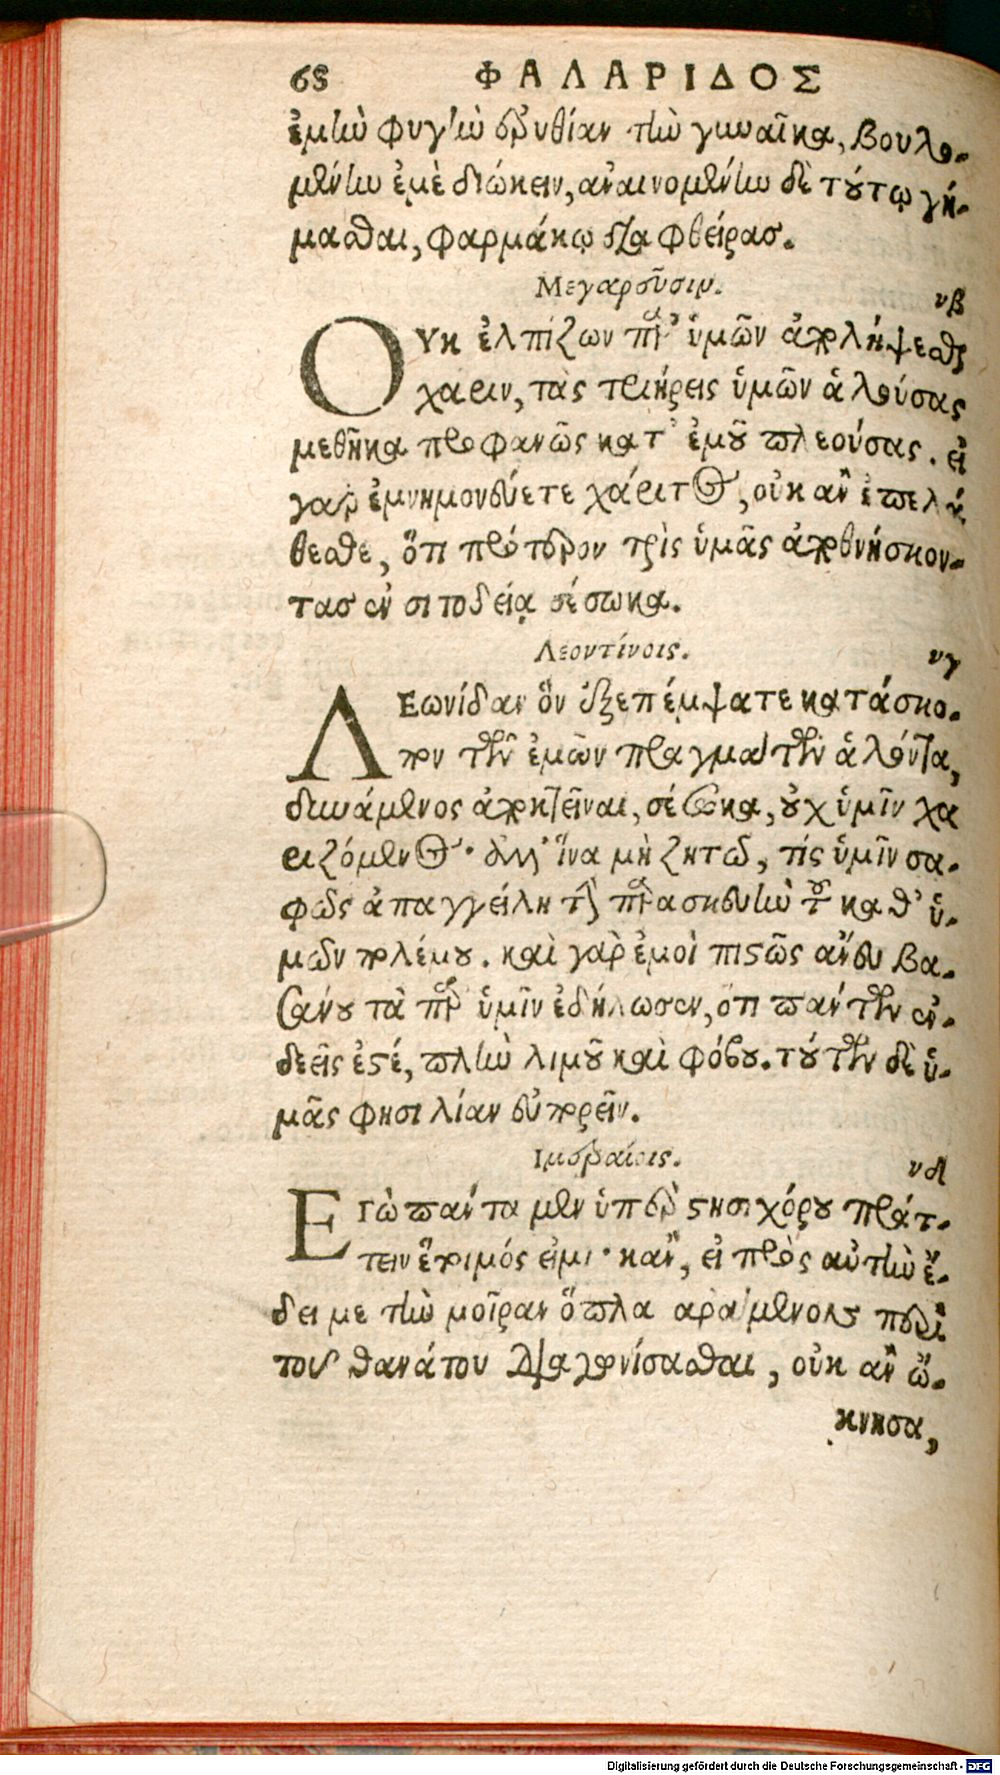 68 ΦΑΛΑΡΙΔΟΣ
ἐμὴν φυγὴν ἐρυθίαν τὴν γυναῖκα, βουλο-
μένην ἐμὲ διώκειν, ἀναινομένην δὲ τούτῳ γή-
μασθαι, φαρμάκῳ διαφθείρας.
Μεγαρεῦσιν. νβ
ΟΥκ ἐλπίζων παρ' ὑμῶν ἀπολήψεσθαι
χάριν, τὰς τριήρεις ὑμῶν ἁλούσας
μεθῆκα προφανῶς κατ' ἐμοῦ πλεούσας. εἰ
γὰρ ἐμνημονεύετε χάριτος, οὐκ ἂν ἐπελά
θεσθε, ὅτι πρότερον τρὶς ὑμᾶς ἀποθνήσκον-
τας ἐν σιτοδείᾳ σέσωκα.
Λεοντίνοις. νγ
ΛΕωνίδαν ὃν ἐξεπέμψατε κατάσκο-
πον τῶν ἐμῶν πραγμάτων ἁλόντα,
δυνάμενος ἀποκτεῖναι, σέσωκα, οὐχ ὑμῖν χα
ριζόμενος· ἀλλ' ἵνα μὴ ζητῶ, τίς ὑμῖν σα-
φῶς ἀπαγγείλῃ τὴν παρασκευὴν τοῦ καθ' ὑ-
μῶν πολέμου. καὶ γὰρ ἐμοὶ πιστῶς ἄνευ βα-
σάνου τὰ παρ' ὑμῖν ἐδήλωσεν, ὅτι πάντων ἐν-
δεεῖς ἐστέ, πλὴν λιμοῦ καὶ φόβου. τούτων δὲ ὑ-
μᾶς φησι λίαν εὐπορεῖν.
Ιμεραίοις. νδ
ΕΓὼ πάντα μὲν ὑπὲρ στησιχόρου πράτ-
τειν ἕτοιμός εἰμι· κἂν, εἰ πρὸς αὐτὴν ἔ-
δει με τὴν μοῖραν ὅπλα ἀράμενον περὶ
τοῦ θανάτου διαγωνίσασθαι, οὐκ ἂν ὤ-
κνησα,
Digitalisierung gefördert durch die Deutsche Forschungsgemeinschaft - DFG